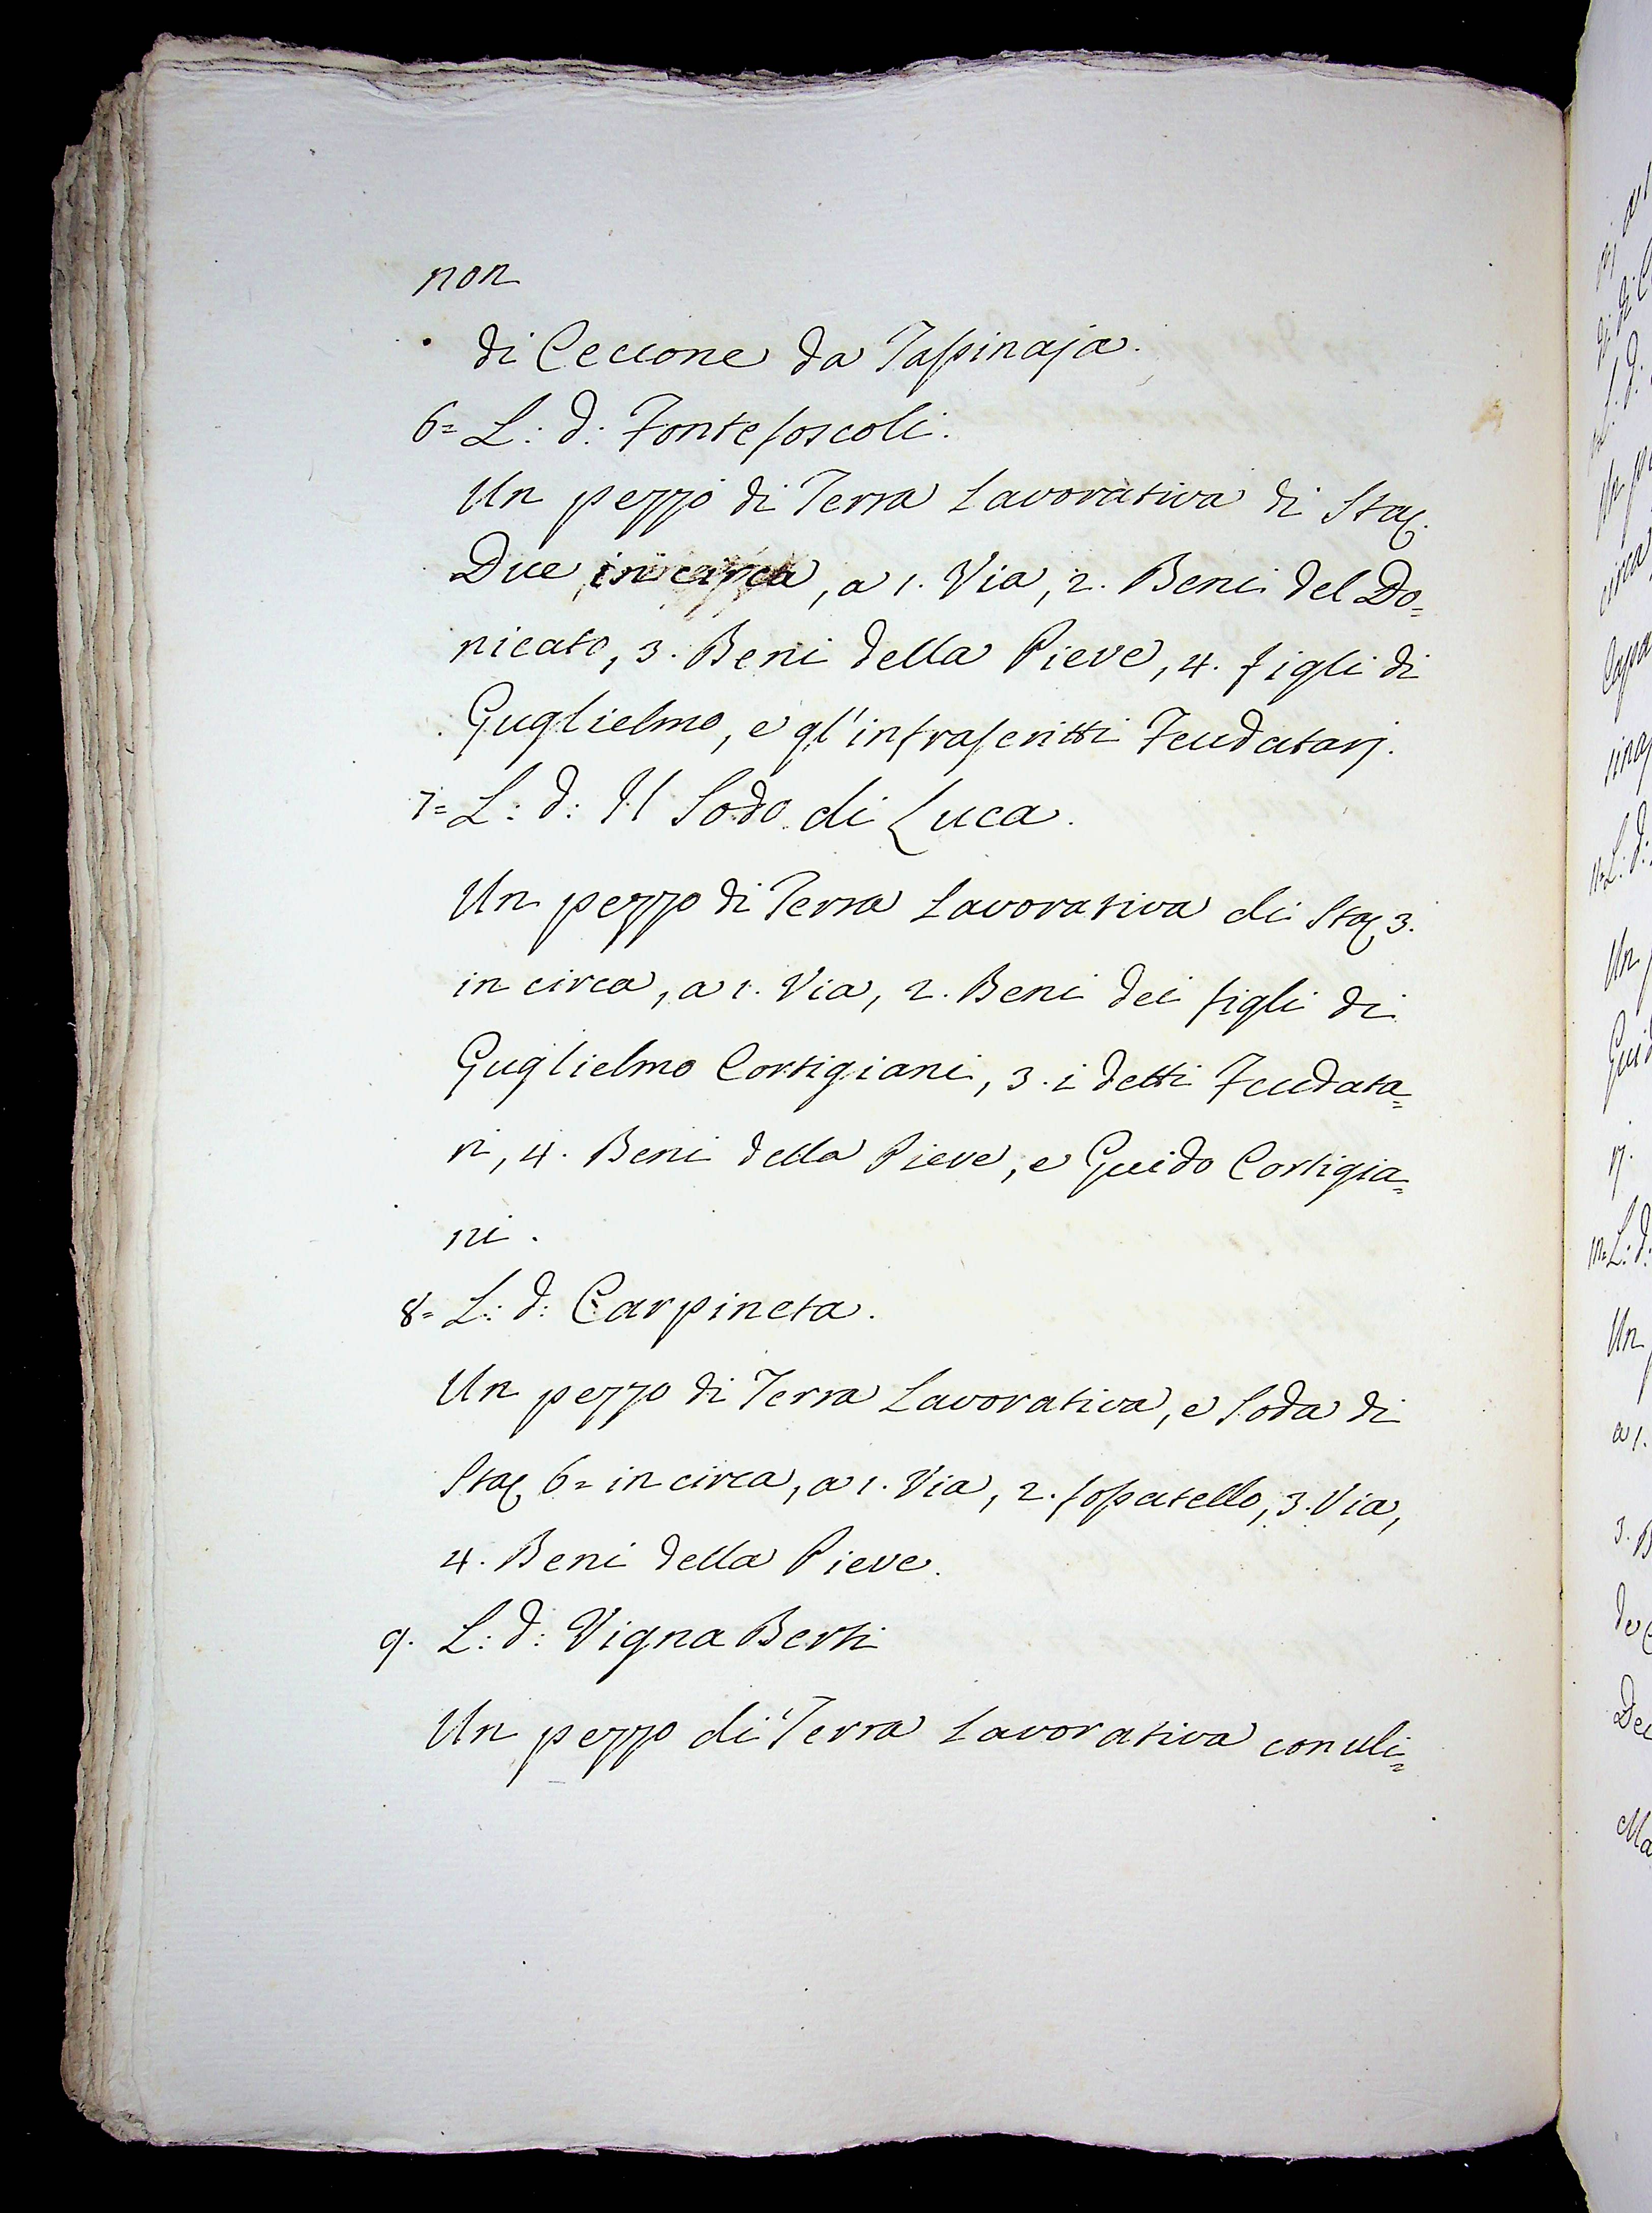 non
di Ceccone da Tassinaja.
6= L: d: Fontefoscoli.
Un pezzo di Terra Lavorativa di Stac.
Due in circa, a 1. Via, 2. Beni del Do=
nicato, 3. Beni della Pieve, 4. figli di
Guglielmo, e gl'infrascritti Feudatarj.
7= L: d: Il Sodo di Luca.
Un pezzo di Terra Lavorativa di Stac 3.
in circa, a 1. Via, 2. Beni dei figli di
Guglielmo Cortigiani, 3. i detti Feudata=
ri, 4. Beni della Pieve, e Guido Cortigia=
ni.
8= L: d: Carpineta.
Un pezzo di Terra Lavorativa, e Soda di
Stac 6= in circa, a 1. Via, 2. fossatello, 3. Via,
4. Beni della Pieve.
9. L: d: Vigna Berti
Un pezzo di Terra Lavorativa con uli=